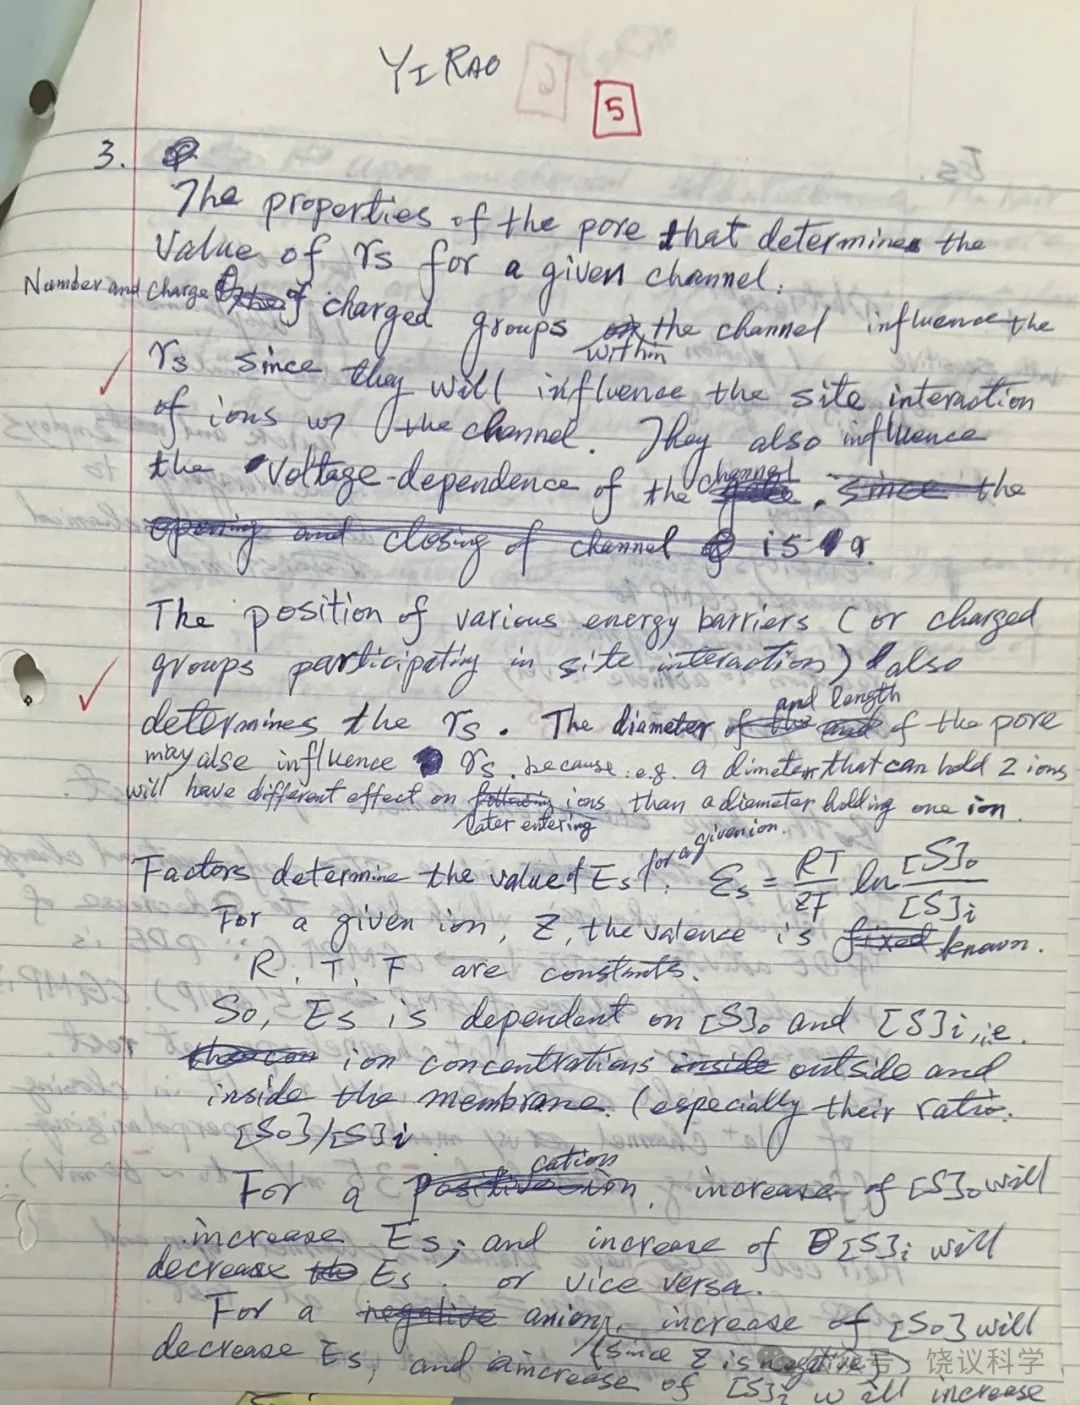 YI RAO
5
3.
The properties of the pore that determines the
value of γs for a given channel.
Number and charge of charged groups within the channel influence the
γs since they will influence the site interaction
of ions w/ the channel. They also influence
the voltage-dependence of the channel. since the
opening and closing of channel is a
The position of various energy barriers (or charged
groups participating in site interaction) also
determines the γs. The diameter and length of the pore
may also influence γs. because. e.g. a dimeter that can hold 2 ions
will have different effect on following ions than a diameter holding one ion.
later entering
Factors determine the value of Es for a given ion. Es = RT/ZF ln [S]o/[S]i
For a given ion, Z, the valence is fixed known.
R, T, F are constants.
So, Es is dependent on [S]o and [S]i, i.e.
the con ion concentrations inside outside and
inside the membrane. (especially their ratio.
[So]/[S]i
For a positive ion cation, increase of [S]o will
increase Es; and increase of [S]i will
decrease the Es. or vice versa.
For a negative anion, increase of [So] will
decrease Es, (since Z is negative)
and increase of [S]i will increase
公众号 饶议科学